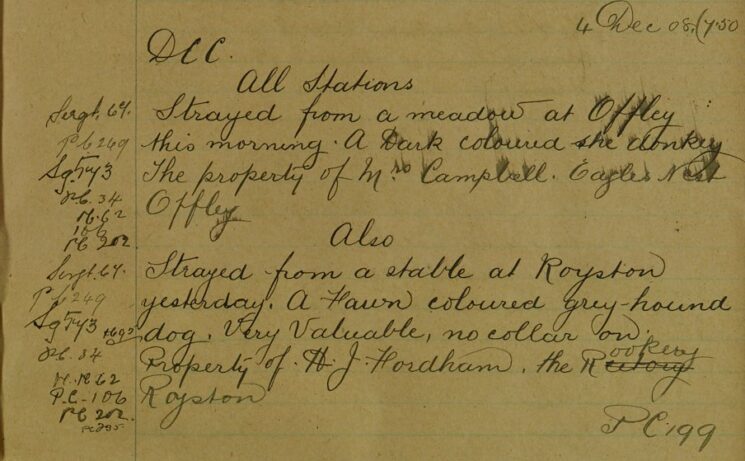 4 Dec 08. (7.50
DCC.
All Stations
Sergt. 64. Strayed from a meadow at Offley
PC 249 this morning. A Dark coloured she donkey
Sgt Fry 3 The property of Mrs Campbell. Eagles Nest
PC. 34 Offley
PC. 62
106
PC 202
Also
Sergt. 64. Strayed from a stable at Royston
PC 249 yesterday. A Fawn coloured grey-hound
Sgt Fry 3 dog. Very Valuable, no collar on.
PC. 34 Property of H J Fordham. the Rectory ookery
62 Royston
P.C. 106
PC 202.
PC 199